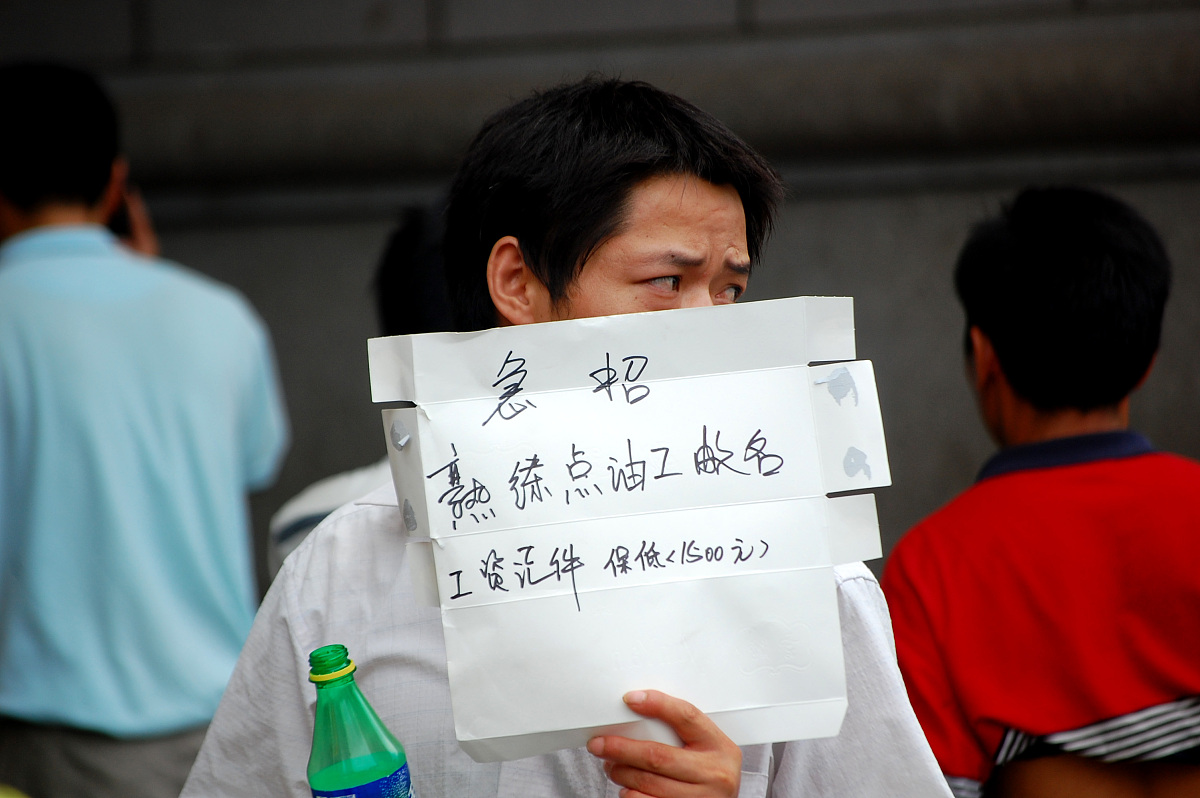 急 招
熟练点油工数名
工资汇件 保低<1500元>